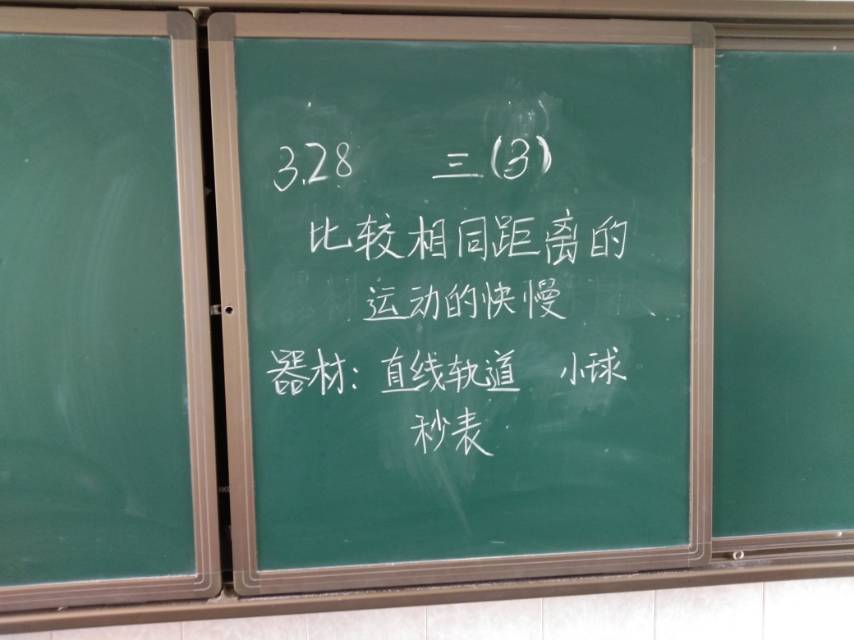 3.28 三(3)
比较相同距离的
运动的快慢
器材：直线轨道 小球
秒表